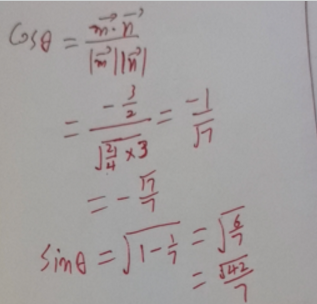 cosθ = \frac{\vec{m}·\vec{n}}{|\vec{m}||\vec{n}|}
= \frac{-\frac{3}{2}}{\sqrt{\frac{21}{4}×3}} = \frac{-1}{\sqrt{7}}
= -\frac{\sqrt{7}}{7}
sinθ = \sqrt{1-\frac{1}{7}} = \sqrt{\frac{6}{7}}
= \frac{\sqrt{42}}{7}